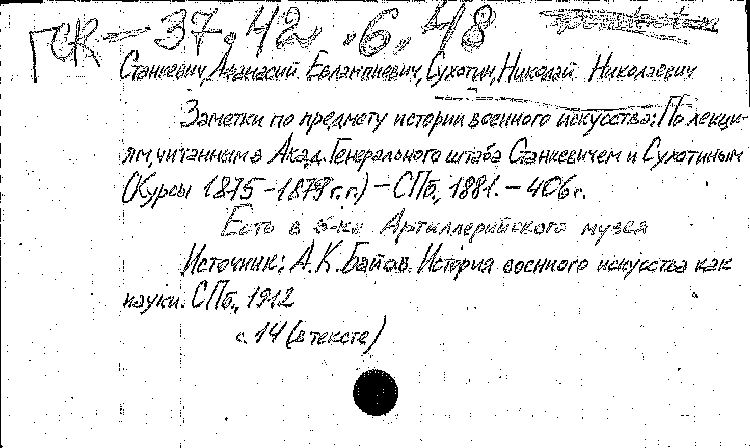 ГСК — 37.42.6.48
Станкевич, Афанасий Евлампиевич, Сухотин, Николай Николаевич
Заметки по предмету истории военного искусства: По лекци-
ям, читанным в Акад. Генерального штаба Станкевичем и Сухотиным
(Курсы 1875-1879 г.г.) — СПб., 1881. — 406 с.
Есть в б-ке Артиллерийского музея
Источник: А.К. Баиов. История военного искусства как
науки. СПб., 1912
с. 14 (в тексте)